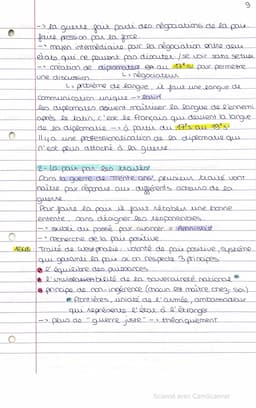 9
-> la guerre fait parti des négociations de la paix
faire pression par la force
-> moyen intermédiaire pour la négociation entre deux
états qui ne peuvent pas discuter / se voir sans
-> création de diplomates au 17e s pour permettre
une discussion
L négociateurs
L problème de langue, il faut une langue de
communication unique -> latin
les diplomates doivent maîtriser la langue de l'ennemi
après le latin, c'est le français qui devient la langue
de la diplomatie -> à partir du 17e s au 19e s
Il y a une professionnalisation de la diplomatie qui
n'est plus attaché à la guerre
2 - La paix par les traités
Dans la guerre de Trente ans, plusieurs traité vont
naître par rapport aux différents acteurs de la
guerre
Pour faire la paix il faut rétablir une bonne
entente, sans désigner les responsables.
-> oubli du passé par = Amnistie
-> recherche de la paix positive
1648 Traité de Westphalie : traité de paix positive, système
qui garantit la paix si on respecte 3 principes
l'équilibre des puissances
l'inviolabilité de la souveraineté national *
principe de non-ingérence (chacun est maître chez soi)
* frontières, unicité de l'armée, ambassadeur
qui représente l'état à l'étranger
-> plus de "guerre juste" -> théoriquement
Scanné avec CamScanner